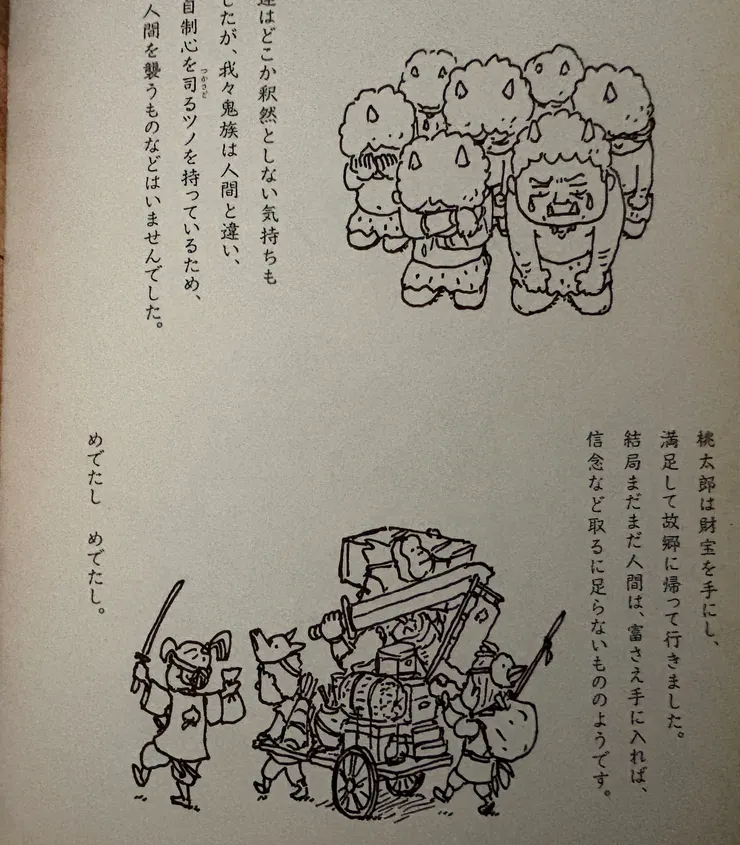 達はどこか釈然としない気持ちも
したが、我々鬼族は人間と違い、
自制心を司るツノを持っているため、
つかさど
人間を襲うものなどはいませんでした。
桃太郎は財宝を手にし、
満足して故郷に帰って行きました。
結局まだまだ人間は、富さえ手に入れば、
信念など取るに足らないもののようです。
めでたし めでたし。